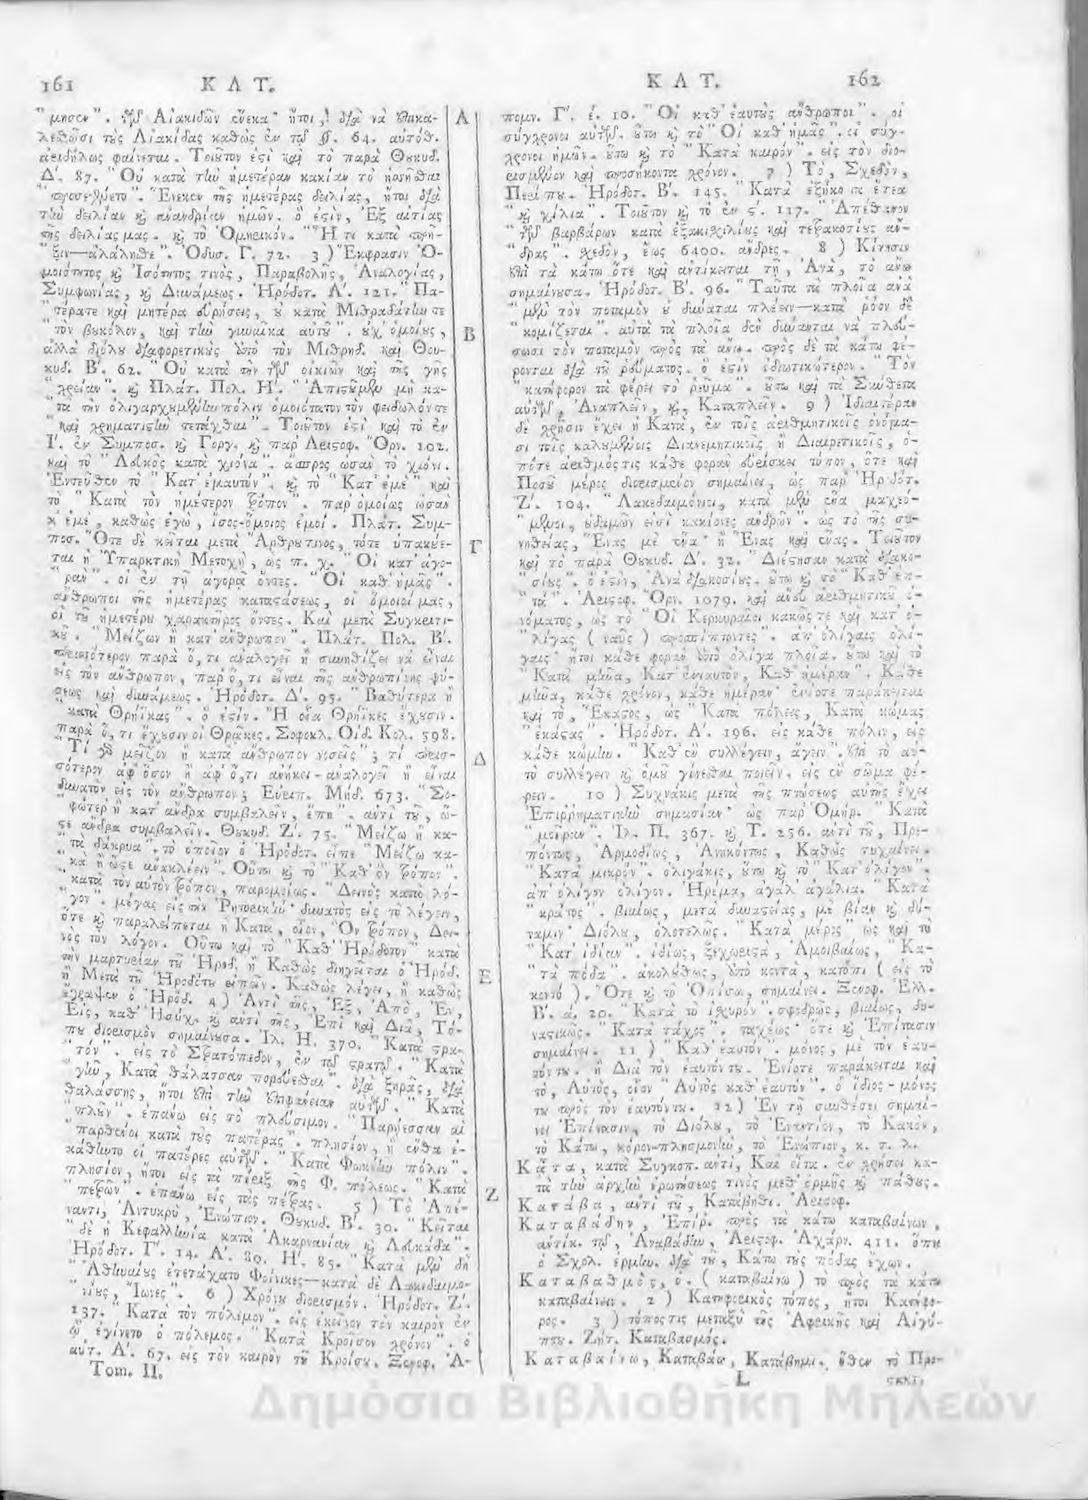 161 ΚΑΤ.
"μησεν". τῶν Αἰακιδῶν ἕνεκα· ἤτοι, διὰ νὰ
τοὺς Αἰακίδας καθὼς ἐν τῷ §. 64. αὐτόθ.
φαίνεται. Τοιοῦτον ἐστὶ καὶ τὸ παρὰ Θουκυδ.
Δ'. 87. "Οὐ κατὰ τὴν ἡμετέραν κακίαν τὸ
Ἕνεκεν τῆς ἡμετέρας δειλίας, ἤτοι διὰ
τὴν δειλίαν καὶ ἀνανδρίαν ἡμῶν. ὅ ἐστιν, Ἐξ αἰτίας
τῆς δειλίας μας. καὶ τὸ Ὁμηρικόν. "Ἤ τι κατὰ πρῆ-
"ξιν—ἀλάλησθε". Ὀδυσ. Γ. 72. 3 ) Ἔκφρασιν Ὁ-
μοιότητος καὶ Ἰσότητος τινὸς, Παραβολῆς, Ἀναλογίας,
Συμφωνίας, καὶ Δυνάμεως. Ἡρόδοτ. Α'. 121. "Πα-
"τέρα τε καὶ μητέρα εὑρήσεις, οὐ κατὰ Μιτραδάτην τε
"τὸν βουκόλον, καὶ τὴν γυναῖκα αὐτοῦ". οὐχ ὁμοίους,
ἀλλὰ διόλου διαφορετικοὺς ἀπὸ τὸν Μιθριδ. καὶ Θου-
κυδ. Β'. 62. "Οὐ κατὰ τὴν τῶν οἰκιῶν καὶ τῆς γῆς
"χρείαν". καὶ Πλάτ. Πολ. Η'. "Ἀπιστοῦμεν μὴ κα-
"τὰ τὴν ὀλιγαρχουμένην πόλιν ὁμοιότατον τὸν φειδωλόν τε
"καὶ χρηματιστὴν τετάχθαι". Τοιοῦτον ἐστὶ καὶ τὸ ἐν
Ι'. ἐν Συμποσ. καὶ Γοργ. καὶ παρ' Ἀριστοφ. Ὄρν. 102.
καὶ τὸ "Λευκὸς κατὰ χιόνα". ἄσπρος ὡσὰν τὸ χιόνι.
Ἐντεῦθεν τὸ "Κατ' ἐμαυτὸν". καὶ τὸ "Κατ' ἐμὲ" καὶ
τὸ "Κατὰ τὸν ἡμέτερον τρόπον". παρομοίως ὡσὰν
κ' ἐμέ, καθὼς ἐγώ, ἴσος-ὅμοιος ἐμοί. Πλάτ. Συμ-
ποσ. Ὅτε δὲ κεῖται μετὰ Ἄρθρου τινος, τότε ὑπακούε-
ται ἡ Ὑπαρκτικὴ Μετοχὴ, ὡς π. χ. "Οἱ κατ' ἀγο-
"ρὰν". οἱ ἐν τῇ ἀγορᾷ ὄντες. "Οἱ καθ' ἡμᾶς".
ἄνθρωποι τῆς ἡμετέρας καταστάσεως, οἱ ὅμοιοί μας,
οἱ τοῦ ἡμετέρου χαρακτῆρος ὄντες. Καὶ μετὰ Συγκριτι-
κοῦ. "Μείζων ἢ κατ' ἄνθρωπον". Πλάτ. Πολ. Β'.
περισσότερον παρὰ ὅ,τι ἀναλογεῖ ἢ συνηθίζει νὰ εἶναι
εἰς τὸν ἄνθρωπον, παρ' ὅ,τι εἶναι τῆς ἀνθρωπίνης φύ-
σεως καὶ δυνάμεως. Ἡρόδοτ. Δ'. 95. "Βαθύτερα ἢ
"κατὰ Θρήϊκας". ὅ ἐστιν. Ἢ οἷα Θρήϊκες ἔχουσιν.
παρὰ ὅ,τι ἔχουσιν οἱ Θρᾷκες. Σοφοκλ. Οἰδ. Κολ. 598.
"Τί γὰρ μεῖζον ἢ κατὰ ἄνθρωπον νοσεῖς; τί περισ-
σότερον ἀφ' ὅσον ἢ ἀφ' ὅ,τι ἀνήκει-ἀναλογεῖ ἢ εἶναι
δυνατὸν εἰς τὸν ἄνθρωπον; Εὐριπ. Μήδ. 673. "Σο-
"φώτερ' ἢ κατ' ἄνδρα συμβαλεῖν, ἔπη". ἀντὶ τοῦ, ὥ-
στε ἄνδρα συμβαλεῖν. Θουκυδ. Ζ'. 75. "Μείζω ἢ κα-
"τὰ δάκρυα". τὸ ὁποῖον ὁ Ἡρόδοτ. εἶπε "Μείζω κα-
"κὰ ἢ ὥστε ἀνακλαίειν". Οὕτω καὶ τὸ "Καθ' ὃν τρόπον".
κατὰ τὸν αὐτὸν τρόπον, παρομοίως. "Δεινὸς κατὰ λό-
"γον". μέγας εἰς τὴν Ῥητορικὴν· δυνατὸς εἰς τὸ λέγειν,
ὅτε καὶ παραλείπεται ἡ Κατὰ, οἷον, Ὃν τρόπον, Δει-
νὸς τὸν λόγον. Οὕτω καὶ τὸ "Καθ' Ἡρόδοτον" κατὰ
τὴν μαρτυρίαν τοῦ Ἡροδ. ἢ Καθὼς διηγεῖται ὁ Ἡρόδ.
ἢ Μετὰ τοῦ Ἡροδότου εἰπεῖν. Καθὼς λέγει, ἢ καθὼς
ἔγραψεν ὁ Ἡρόδ. 4 ) Ἀντὶ τῆς, Ἐξ, Ἀπὸ, Ἐν,
Εἰς, καθ' Ἡσύχ. καὶ ἀντὶ τῆς, Ἐπὶ καὶ Διὰ, Τό-
που διορισμὸν σημαίνουσα. Ἰλ. Η. 370. "Κατὰ στρα-
"τόν". εἰς τὸ Στρατόπεδον, ἐν τῷ στρατῷ. "Κατὰ
γῆν, Κατὰ θάλατταν πορεύεσθαι". διὰ ξηρᾶς, διὰ
θαλάσσης, ἤτοι ἐπὶ τὴν ἐπιφάνειαν αὐτῶν. "Κατὰ
"πλοῦν". ἐπάνω εἰς τὸ πλεύσιμον. "Παρῄεσσαν αἱ
"παρθένοι κατὰ τοὺς πατέρας". πλησίον, ἢ ἔνθα ἐ-
κάθηντο οἱ πατέρες αὐτῶν. "Κατὰ Φωκίην πόλιν".
πλησίον, ἤτοι εἰς τὰ πέριξ τῆς Φ. πόλεως. "Κατὰ
"πέτρων". ἐπάνω εἰς τὰς πέτρας. 5 ) Τὸ Ἀπέ-
ναντι, Ἀντικρύ, Ἐνώπιον. Θουκυδ. Β'. 30. "Κεῖται
"δὲ ἡ Κεφαλληνία κατὰ Ἀκαρνανίαν καὶ Λευκάδα".
Ἡρόδοτ. Γ'. 14. Α'. 80. Η'. 85. "Κατὰ μὲν δὴ
"Ἀθηναίους ἐτετάχατο Φοίνικες—κατὰ δὲ Λακεδαιμο-
νίους, Ἴωνες". 6 ) Χρόνου διορισμόν. Ἡρόδοτ. Ζ'.
137. "Κατὰ τὸν πόλεμον". εἰς ἐκεῖνον τὸν καιρὸν ἐν
ᾧ ἐγίνετο ὁ πόλεμος. "Κατὰ Κροῖσον χρόνον". ὁ
αὐτ. Α'. 67. εἰς τὸν καιρὸν τοῦ Κροίσου. Ξενοφ. Ἀ-
Tom. II.
Α
Β
Γ
Δ
Ε
Ζ
ΚΑΤ. 162
πομν. Γ'. έ. 10. "Οἱ καθ' ἑαυτοὺς ἄνθρωποι". οἱ
σύγχρονοι αὐτῶν. οὕτω καὶ τὸ "Οἱ καθ' ἡμᾶς". οἱ σύγ-
χρονοι ἡμῶν. οὕτω καὶ τὸ "Κατὰ καιρόν". εἰς τὸν διο-
ρισμένον καὶ προσήκοντα χρόνον. 7 ) Τὸ, Σχεδὸν,
Περί που. Ἡρόδοτ. Β'. 145. "Κατὰ ἑξήκοντα ἔτεα
"καὶ χίλια". Τοιοῦτον καὶ τὸ ἐν ς'. 117. "Ἀπέθανον
"τῶν βαρβάρων κατὰ ἑξακισχιλίους καὶ τετρακοσίους ἄν-
"δρας". σχεδὸν, ἕως 6400. ἄνδρες. 8 ) Κίνησιν
ἐπὶ τὰ κάτω ὅτε καὶ ἀντίκειται τῇ, Ἀνὰ, τὸ ἄνω
σημαίνουσα. Ἡρόδοτ. Β'. 96. "Ταῦτα τὰ πλοῖα ἀνὰ
"μὲν τὸν ποταμὸν οὐ δύναται πλέειν—κατὰ ῥόον δὲ
"κομίζεται". αὐτὰ τὰ πλοῖα δὲν δύνανται νὰ πλεύ-
σωσι τὸν ποταμὸν πρὸς τὰ ἄνω. πρὸς δὲ τὰ κάτω φέ-
ρονται διὰ τοῦ ῥεύματος. ὅ ἐστιν ἰδιωτικώτερον. "Τὸν
"κατήφορον τὰ φέρει τὸ ῥεῦμα". οὕτω καὶ τὰ Σύνθετα
αὐτῶν, Ἀναπλεῖν, καὶ, Καταπλεῖν. 9 ) Ἰδιαιτέραν
δὲ χρῆσιν ἔχει ἡ Κατὰ, ἐν τοῖς ἀριθμητικοῖς ὀνόμα-
σι τοῖς καλουμένοις Διανεμητικοῖς ἢ Διαιρετικοῖς, ὁ-
πότε ἀριθμός τις κάθε φορὰν εὑρίσκει τόπον, ὅτε καὶ
Ποσοῦ μέρος διορισμένον σημαίνει, ὡς παρ' Ἡροδότ.
Ζ'. 104. "Λακεδαιμόνιοι, κατὰ μὲν ἕνα μαχεό-
"μενοι, οὐδαμῶν εἰσὶ κακίονες ἀνδρῶν". ὡς τὸ τῆς συ-
νηθείας, Ἕνας μὲ ἕνα· ἢ Ἕνας καὶ ἕνας. Τοιοῦτον
καὶ τὸ παρὰ Θουκυδ. Δ'. 32. "Διέστησαν κατὰ διακο-
"σίους". ὅ ἐστιν, Ἀνὰ διακοσίους. οὕτω καὶ τὸ "Καθ' ἑπ-
"τὰ". Ἀριστοφ. Ὄρν. 1079. καὶ ἄνευ ἀριθμητικοῦ ὀ-
νόματος, ὡς τὸ "Οἱ Κερκυραῖοι κακῶς τε καὶ κατ' ὀ-
"λίγας ( ναῦς ) προσπίπτοντες". ἀπ' ὀλίγαις ὀλί-
γαις· ἤτοι κάθε φορὰν ἀπὸ ὀλίγα πλοῖα. οὕτω καὶ τὸ
"Κατὰ μῆνα, Κατ' ἐνιαυτὸν, Καθ' ἡμέραν". Κάθε
μῆνα, κάθε χρόνον, κάθε ἡμέραν· ἐνίοτε παράκειται
καὶ τὸ, Ἕκαστος, ὡς "Κατὰ πόλεις, Κατὰ κώμας
"ἑκάστας". Ἡρόδοτ. Α'. 196. εἰς κάθε πόλιν, εἰς
κάθε κώμην. "Καθ' ἓν συλλέγειν, ἄγειν". ἐπὶ τὸ αὐ-
τὸ συλλέγειν καὶ ὁμοῦ γίνεσθαι ποιεῖν. εἰς ἓν σῶμα φέ-
ρειν. 10 ) Συχνάκις μετὰ τῆς πτώσεως αὐτῆς ἔχει
Ἐπιρρηματικὴν σημασίαν· ὡς παρ' Ὁμήρ. "Κατὰ
"μοῖραν". Ἰλ. Π. 367. καὶ Τ. 256. ἀντὶ τοῦ, Πρε-
πόντως, Ἁρμοδίως, Ἀνηκόντως, Καθὼς τυχαίνει.
"Κατὰ μικρόν". ὀλιγάκις, οὕτω καὶ τὸ "Κατ' ὀλίγον".
ἀπ' ὀλίγον ὀλίγον. Ἠρέμα, ἀγάλ' ἀγάλια. "Κατὰ
"κράτος". βιαίως, μετὰ δυναστείας, μὲ βίαν καὶ δύ-
ναμιν· Διόλου, ὁλοτελῶς. "Κατὰ μέρος" ὡς καὶ τὸ
"Κατ' ἰδίαν". ἰδίως, ξεχωριστὰ, Ἀμοιβαίως, "Κα-
"τὰ πόδα". ἀκολούθως, ἀπὸ κοντὰ, κατόπι ( εἰς τὸ
κοντὸ ). Ὅτε καὶ τὸ Ὀπίσω, σημαίνει. Ξενοφ. Ἑλλ.
Β'. ά. 20. "Κατὰ τὸ ἰσχυρόν". σφοδρῶς, βιαίως, δυ-
ναστικῶς. "Κατὰ τάχος". ταχέως· ὅτε καὶ Ἐπίτασιν
σημαίνει. 11 ) "Καθ' ἑαυτόν". μόνος, μὲ τὸν ἑαυ-
τόν του. ἢ Διὰ τὸν ἑαυτόν του. Ἐνίοτε παράκειται καὶ
τὸ, Αὐτὸς, οἷον "Αὐτὸς καθ' ἑαυτόν". ὁ ἴδιος-μόνος
του πρὸς τὸν ἑαυτόν του. 12 ) Ἐν τῇ συνθέσει σημαί-
νει Ἐπίτασιν, τὸ Διόλου, τὸ Ἐναντίον, τὸ Κακόν,
τὸ Κάτω, κόρον-πλησμονὴν, τὸ Ἐνώπιον, κ. τ. λ.
Κᾆτα, κατὰ Συγκοπ. ἀντὶ, Καὶ εἶτα. ἐν χρήσει κα-
τὰ τὴν ἀρχὴν ἐρωτήσεως τινὸς μεθ' ὁρμῆς καὶ πάθους.
Κατάβα, ἀντὶ τοῦ, Κατάβηθι. Ἀριστοφ.
Καταβάδην, Ἐπίρ. πρὸς τὰ κάτω καταβαίνων,
ἀντίκ. τῷ, Ἀναβάδην, Ἀριστοφ. Ἀχάρν. 411. ὅπου
ὁ Σχολ. ἑρμην. διὰ τοῦ, Κάτω τοὺς πόδας ἔχων.
Καταβαθμὸς, ὁ. ( καταβαίνω ) τὸ πρὸς τὰ κάτω
καταβαίνειν. 2 ) Κατηφορικὸς τόπος, ἤτοι Κατήφο-
ρος. 3 ) τόπος τις μεταξὺ τῆς Ἀφρικῆς καὶ Αἰγύ-
πτου. Ζήτ. Καταβασμός.
Καταβαίνω, Καταβάω, Κατάβημι. ὅθεν τὸ Προ-
L στακτ.
Δημόσια Βιβλιοθήκη Μηλεών